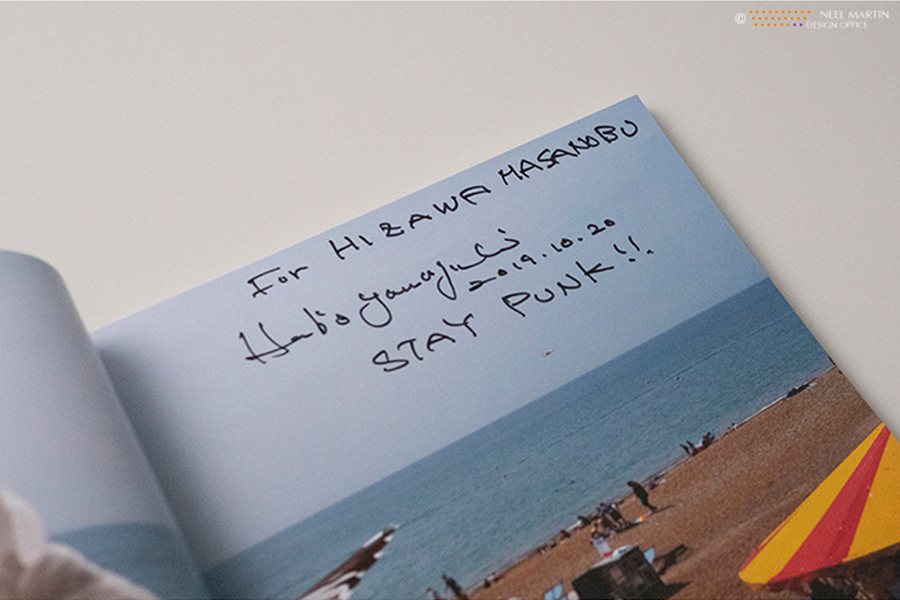 © NEEL MARTIN
DESIGN OFFICE
For HIZAWA MASANOBU
2019.10.20
STAY PUNK!!